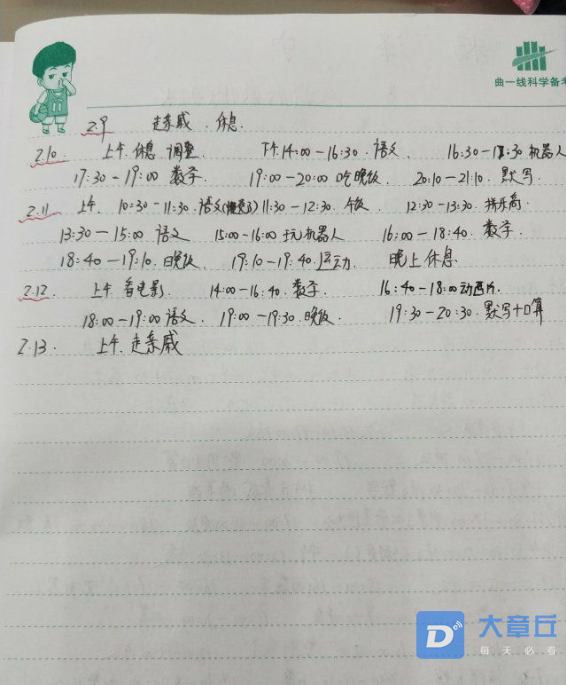 曲一线科学备考
2.9 走亲戚 休息
2.10 上午 休息 调整 下午 14:00-16:30 语文 16:30-17:30 机器人
17:30-19:00 数学 19:00-20:00 吃晚饭 20:10-21:10 默写
2.11 上午 10:30-11:30 语文 11:30-12:30 午饭 12:30-13:30 拼乐高
13:30-15:00 语文 15:00-16:00 玩机器人 16:00-18:40 数学
18:40-19:10 晚饭 19:10-19:40 运动 晚上休息
2.12 上午 看电影 14:00-16:40 数学 16:40-18:00 动画片
18:00-19:00 语文 19:00-19:30 晚饭 19:30-20:30 默写+口算
2.13 上午 走亲戚
大章丘
每天必看